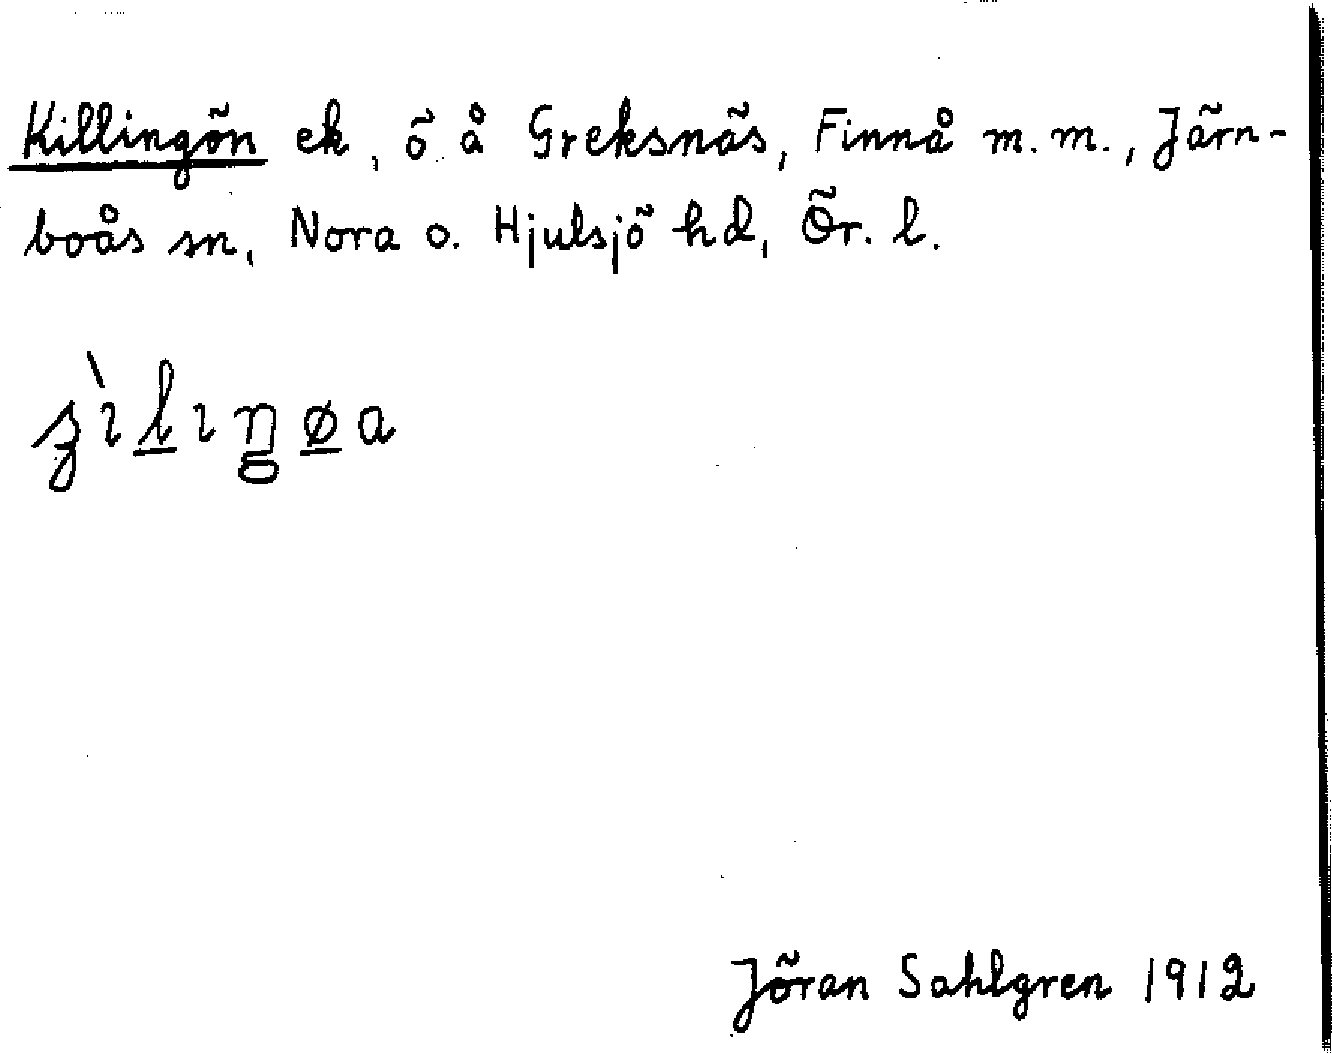 Killingön ek, ö å Greksnäs, Finnå m.m., Järn-
boås sn, Nora o. Hjulsjö hd, Ör. l.
Jöran Sahlgren 1912